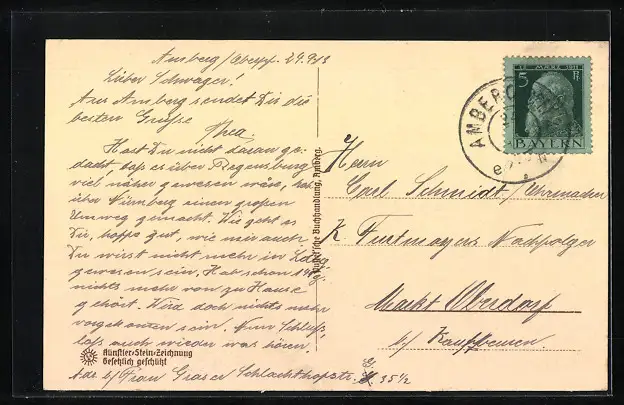 Amberg/Oberpf. 24.9.13
Lieber Schwager!
Aus Amberg sendet Dir die
besten Grüße
Thea.
Hast Du nicht daran ge-
dacht, daß es über Regensburg
viel näher gewesen wäre, hab
über Nürnberg einen großen
Umweg gemacht. Wie geht es
Dir, hoffe gut, wie mir auch.
Du wirst nicht mehr in
gewesen sein. Hab schon
nichts mehr von zu Hause
gehört. Wird doch nichts mehr
vorgekommen sein. Nun Schluß,
laß auch wieder was hören,
Adr. b/ Frau Graser Schlachthofstr. 35 1/2
Künstler-Stein-Zeichnung
Gesetzlich geschützt
Buchhandlung, Amberg.
12. MÄRZ 1911
5 Pf
BAYERN
AMBERG
Herrn
Carl Schmidt/Uhrmacher
Furtmayers Nachfolger
Markt Oberdorf
b/ Kaufbeuren